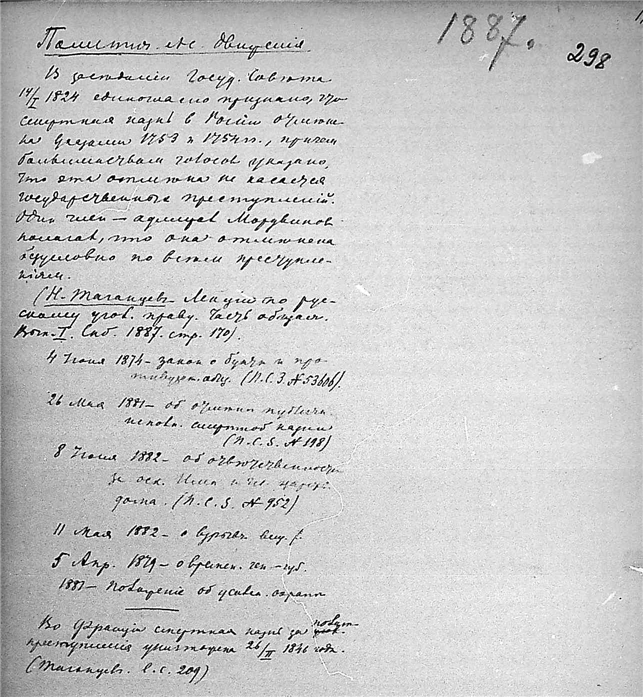 1887.
298
Политич. движенія
Въ заседаніи Госуд. Совѣта
14/I 1824 единогласно признано, что
смертная казнь в Россіи отмѣне-
на указами 1753 и 1754 гг., причем
большинством голосов указано,
что эта отмѣна не касается
государственных преступленій.
Один член — адмирал Мордвинов
полагал, что она отмѣнена
безусловно по всѣм преступле-
ніям.
(Н. Таганцев. Лекціи по рус-
скому угов. праву. Часть общая.
Вып. I. Спб. 1887. стр. 170).
4 Іюня 1874 – закон о
(П.С.З. № 53606).
26 Мая 1881 – об отмѣнѣ публичн.
исполн. смертной казни
(П.С.З. № 198)
8 Іюня 1882 – об отвѣтственности
за оск. Имп. и чл. царск.
дома. (П.С.З. № 952)
11 Мая 1882 – о взрывч. вещ.
5 Апр. 1879 – о времен. ген.–губ.
1881 – Положеніе об усилен. охранѣ
Во Франціи смертная казнь за полит.
преступленія уничтожена 26/II 1848 года.
(Таганцев. l. c. 209)